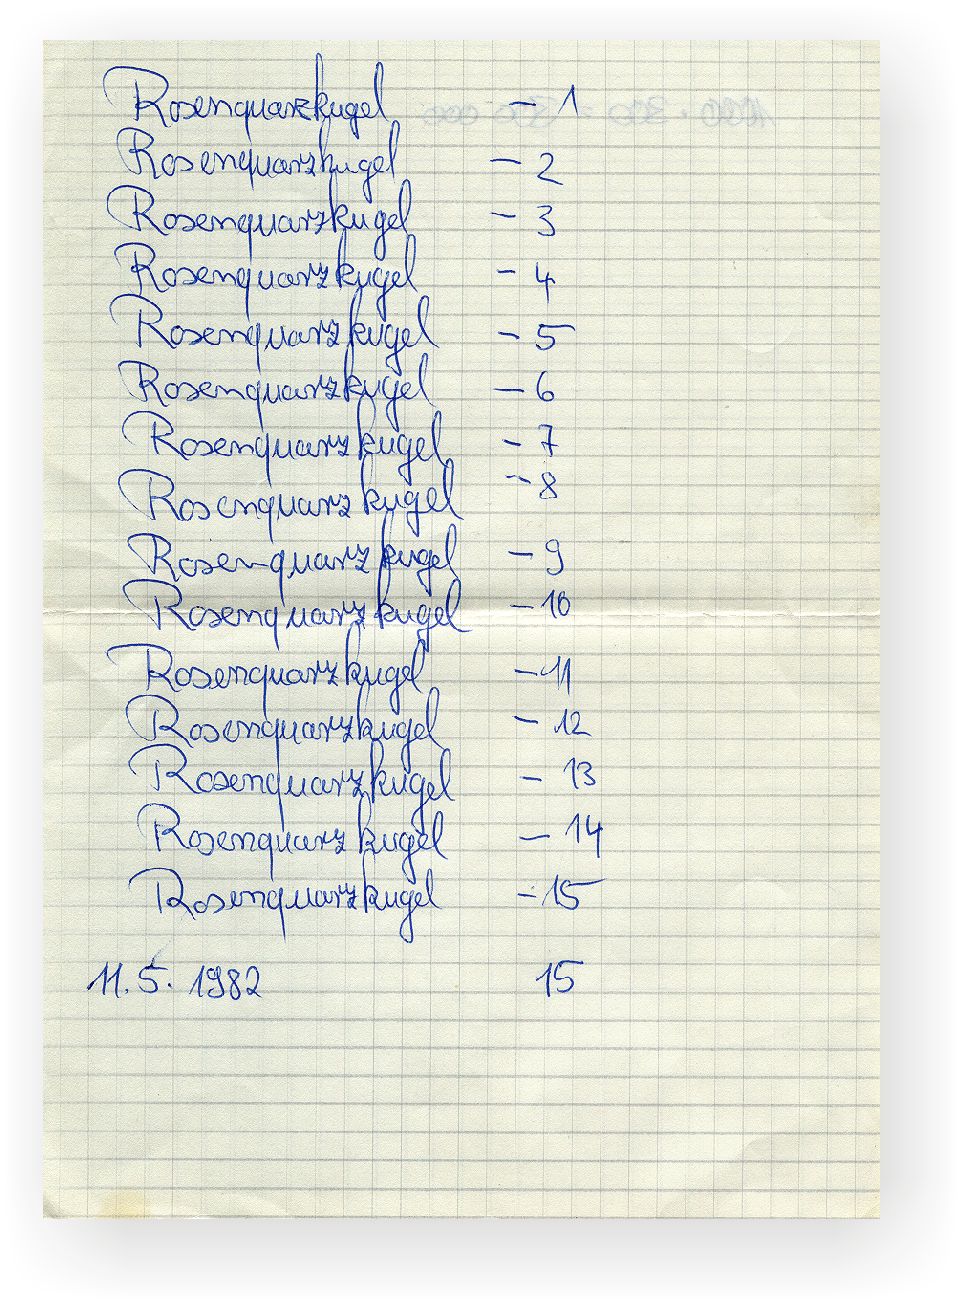 Rosenquarzkugel – 1
Rosenquarzkugel – 2
Rosenquarzkugel – 3
Rosenquarzkugel – 4
Rosenquarzkugel – 5
Rosenquarzkugel – 6
Rosenquarzkugel – 7
Rosenquarzkugel – 8
Rosenquarzkugel – 9
Rosenquarzkugel – 10
Rosenquarzkugel – 11
Rosenquarzkugel – 12
Rosenquarzkugel – 13
Rosenquarzkugel – 14
Rosenquarzkugel – 15
11.5. 1982 15